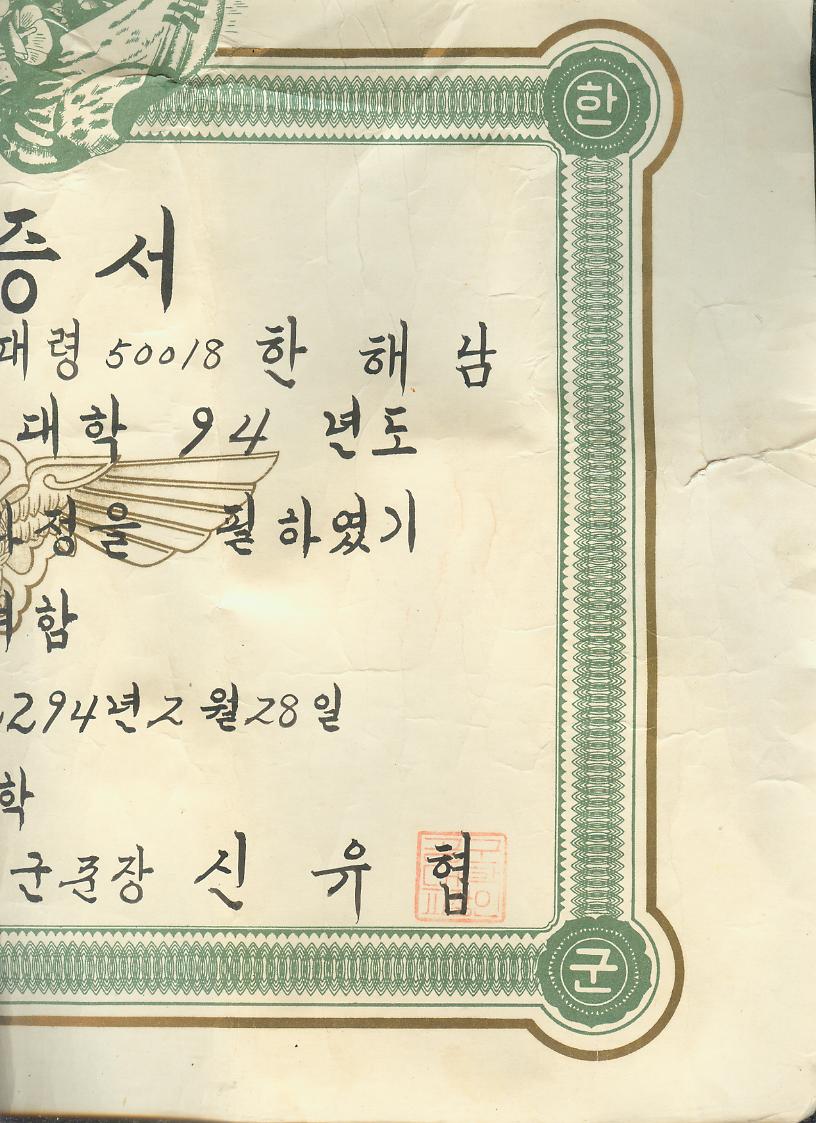 한
증서
대령 50018 한 해 남
대학 94 년도
정을 필하였기
함
294년 2월 28일
학
군준장 신 유 협
군